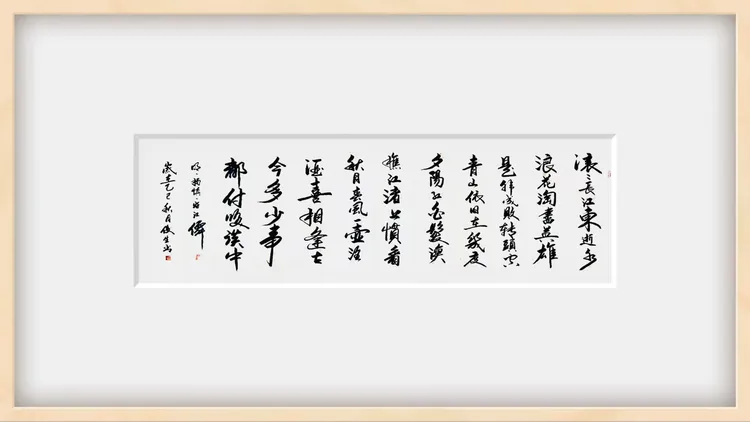 滚々長江東逝水
浪花淘盡英雄
是非成敗轉頭空
青山依旧在幾度
夕陽紅白髮漁
樵江渚上慣看
秋月春風一壺浊
酒喜相逢古
今多少事
都付笑談中
明·楊慎·临江僊
歲在乙巳秋月